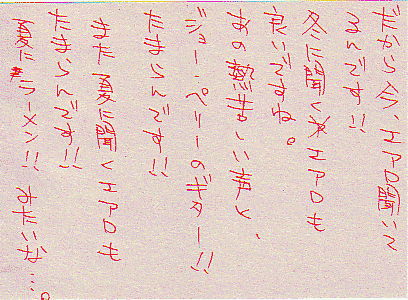 だから今、エアロ聞いて
るんです!!
冬に聞くエアロも
良いですね。
あの熱苦しい声と、
ジョー・ペリーのギター!!
たまらんです!!
また夏に聞くエアロも
たまらんです!!
夏にラーメン!!みたいな…。